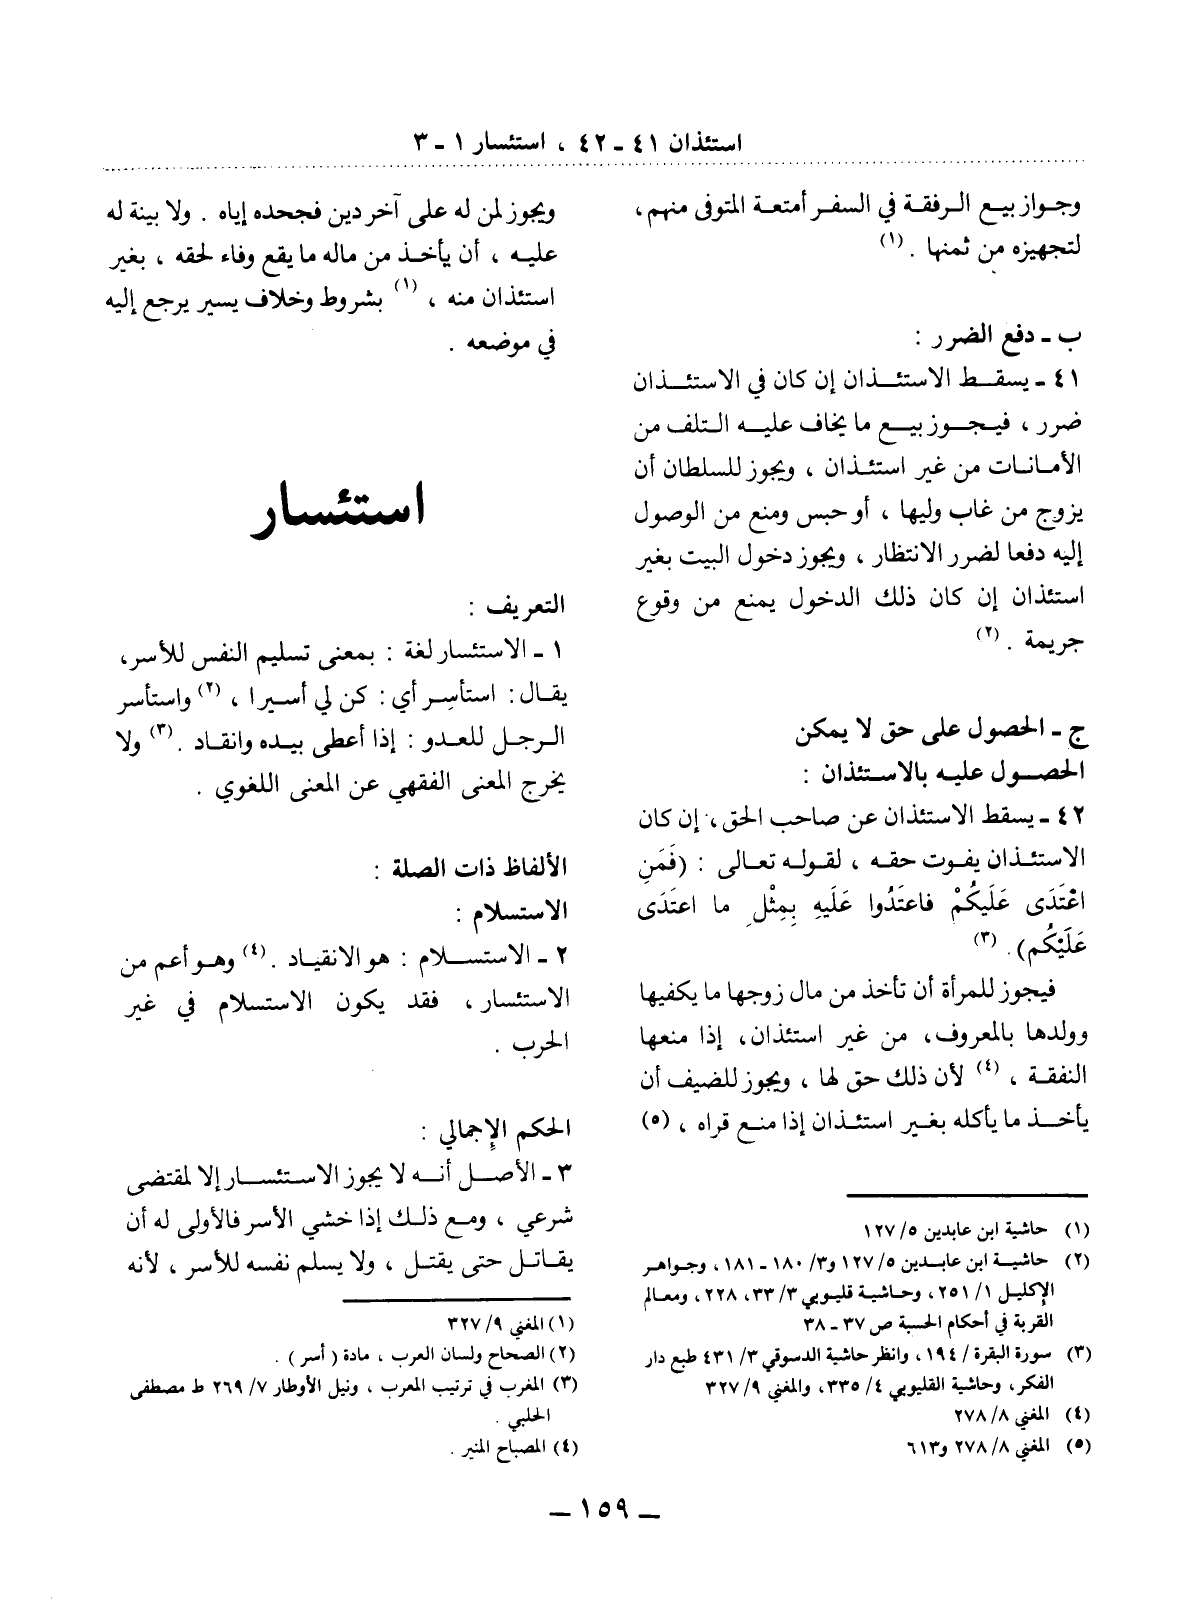 استئذان ٤١ - ٤٢ ، استئسار ١ - ٣
وجواز بيع الرفقة في السفر أمتعة المتوفى منهم،
لتجهيزه من ثمنها . (١)
ب - دفع الضرر :
٤١ - يسقط الاستئذان إن كان في الاستئذان
ضرر ، فيجوز بيع ما يخاف عليه التلف من
الأمانات من غير استئذان ، ويجوز للسلطان أن
يزوج من غاب وليها ، أو حبس ومنع من الوصول
إليه دفعا لضرر الانتظار ، ويجوز دخول البيت بغير
استئذان إن كان ذلك الدخول يمنع من وقوع
جريمة . (٢)
ج - الحصول على حق لا يمكن
الحصول عليه بالاستئذان :
٤٢ - يسقط الاستئذان عن صاحب الحق، إن كان
الاستئذان يفوت حقه ، لقوله تعالى : (فَمَنِ
اعْتَدَى عَلَيكُمْ فاعتَدُوا عَلَيهِ بِمِثْلِ ما اعتَدَى
عَلَيْكُم). (٣)
فيجوز للمرأة أن تأخذ من مال زوجها ما يكفيها
وولدها بالمعروف، من غير استئذان، إذا منعها
النفقة ، (٤) لأن ذلك حق لها ، ويجوز للضيف أن
يأخذ ما يأكله بغير استئذان إذا منع قراه ، (٥)
(١) حاشية ابن عابدين ٥/ ١٢٧
(٢) حاشية ابن عابدين ٥/ ١٢٧ و٣/ ١٨٠ - ١٨١ ، وجواهر
الإكليل ١/ ٢٥١ ، وحاشية قليوبي ٣/ ٣٣، ٢٢٨ ، ومعالم
القربة في أحكام الحسبة ص ٣٧ - ٣٨
(٣) سورة البقرة / ١٩٤ ، وانظر حاشية الدسوقي ٣/ ٤٣١ طبع دار
الفكر، وحاشية القليوبي ٤/ ٣٣٥، والمغني ٩/ ٣٢٧
(٤) المغني ٨/ ٢٧٨
(٥) المغني ٨/ ٢٧٨ و٦١٣
ويجوز لمن له على آخر دين فجحده إياه . ولا بينة له
عليه ، أن يأخذ من ماله ما يقع وفاء لحقه ، بغير
استئذان منه ، (١) بشروط وخلاف يسير يرجع إليه
في موضعه .
استئسار
التعريف :
١ - الاستئسار لغة : بمعنى تسليم النفس للأسر،
يقال: استأسِر أي: كن لي أسيرا ، (٢) واستأسر
الرجل للعدو : إذا أعطى بيده وانقاد .(٣) ولا
يخرج المعنى الفقهي عن المعنى اللغوي .
الألفاظ ذات الصلة :
الاستسلام :
٢ - الاستسلام : هو الانقياد .(٤) وهو أعم من
الاستئسار ، فقد يكون الاستسلام في غير
الحرب .
الحكم الإجمالي :
٣ - الأصل أنه لا يجوز الاستئسار إلا لمقتضى
شرعي ، ومع ذلك إذا خشي الأسر فالأولى له أن
يقاتل حتى يقتل ، ولا يسلم نفسه للأسر ، لأنه
(١) المغني ٩/ ٣٢٧
(٢) الصحاح ولسان العرب ، مادة ( أسر ) .
(٣) المغرب في ترتيب المعرب ، ونيل الأوطار ٧/ ٢٦٩ ط مصطفى
الحلبي .
(٤) المصباح المنير .
– ١٥٩ –